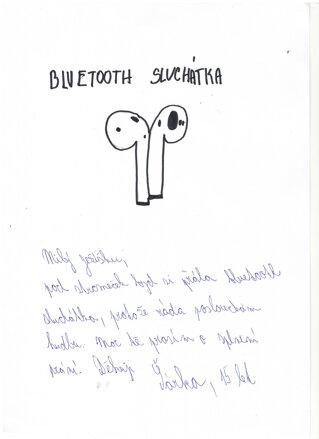 BLUETOOTH SLUCHÁTKA
Milý ježíšku,
pod stromeček bych si přála bluetooth
sluchátka, protože ráda poslouchám
hudbu. Moc tě prosím o splnění
přání. Děkuji Šárka, 15 let